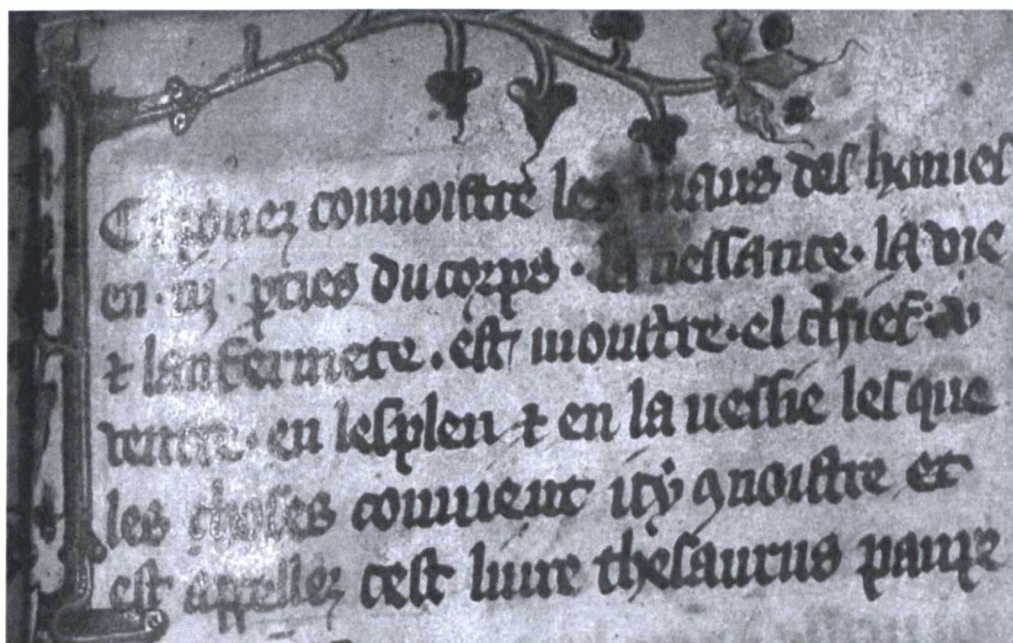 connoistre les maus des homes
en · iiij · pties du corps · la nessance · la vie
⁊ lanfermete · est moustre · el chief · au
ventre · en lesplen ⁊ en la uessie lesque
les choses conuient icy ꝯnoistre et
est appellez cest liure thesaurus paupe